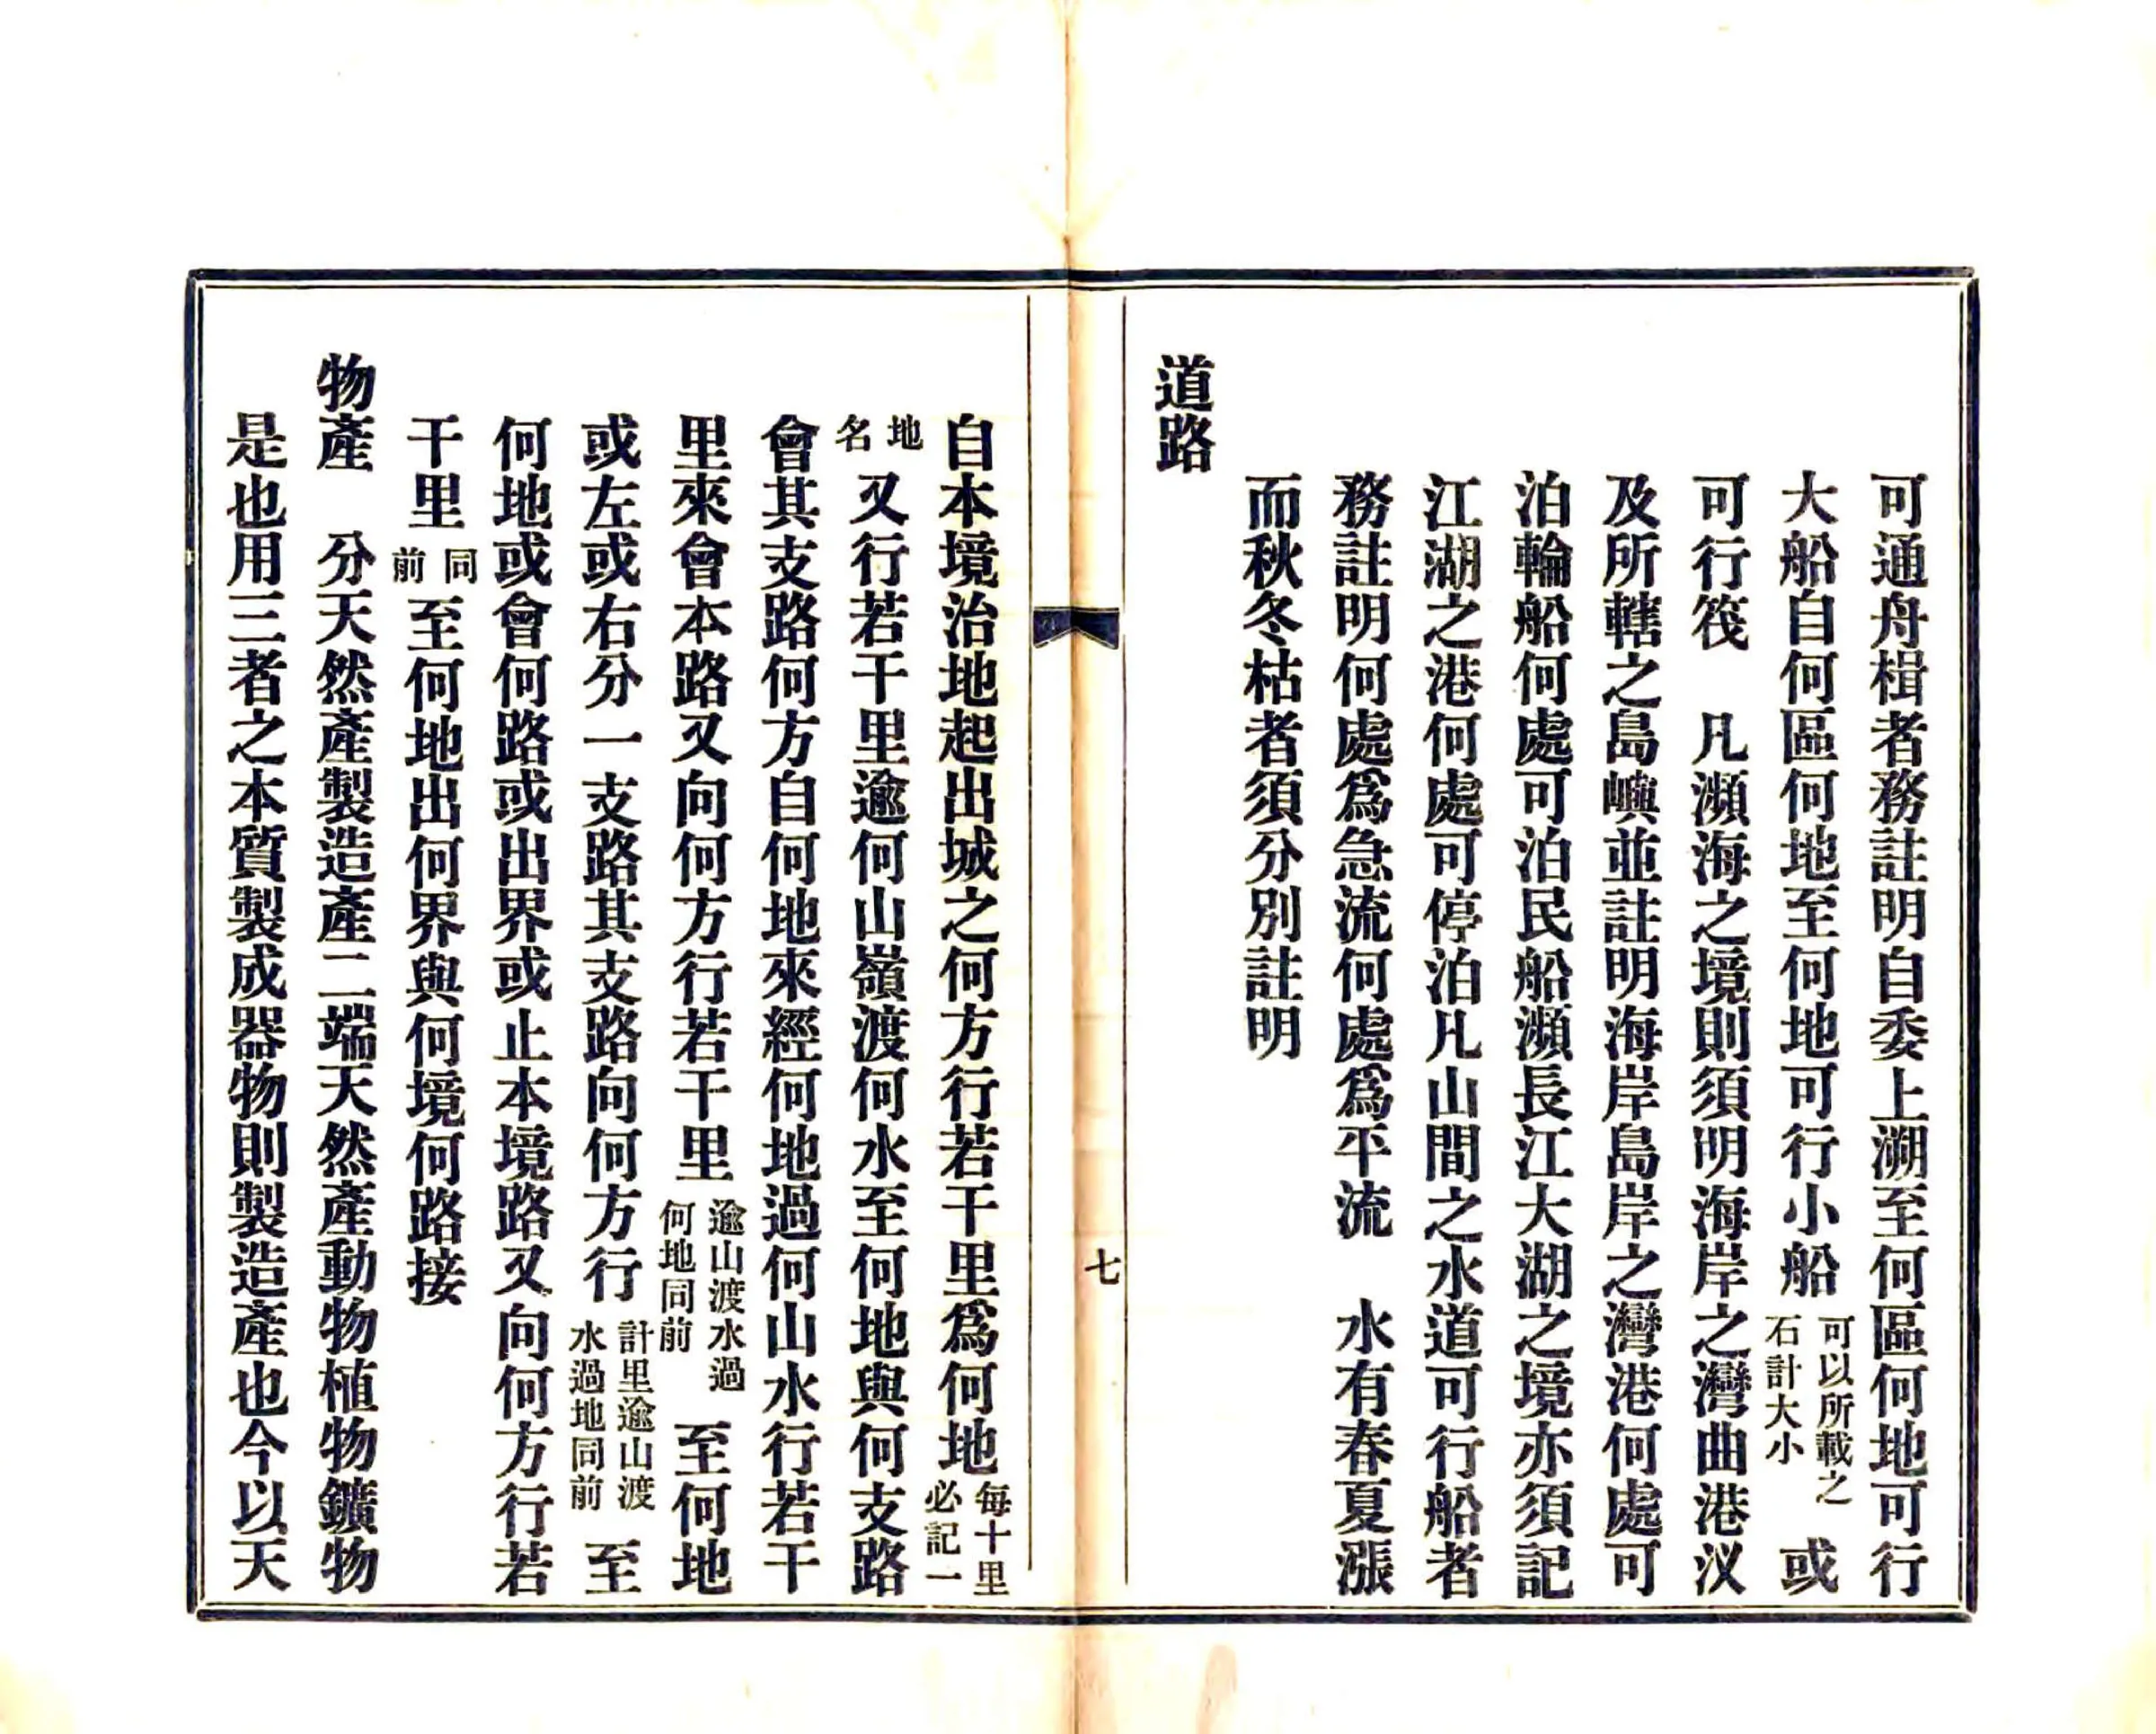 可通舟楫者務註明自委上溯至何區何地可行
大船自何區何地至何地可行小船可以所載之石計大小或
可行筏　凡瀕海之境則須明海岸之灣曲港汊
及所轄之島嶼並註明海岸島岸之灣港何處可
泊輪船何處可泊民船瀕長江大湖之境亦須記
江湖之港何處可停泊凡山間之水道可行船者
務註明何處爲急流何處爲平流　水有春夏漲
而秋冬枯者須分別註明
道路
七
自本境治地起出城之何方行若干里爲何地每十里必記一
地名又行若干里逾何山嶺渡何水至何地與何支路
會其支路何方自何地來經何地過何山水行若干
里來會本路又向何方行若干里逾山渡水過何地同前至何地
或左或右分一支路其支路向何方行計里逾山渡水過地同前至
何地或會何路或出界或止本境路又向何方行若
干里同前至何地出何界與何境何路接
物產　分天然產製造產二端天然產動物植物鑛物
是也用三者之本質製成器物則製造產也今以天